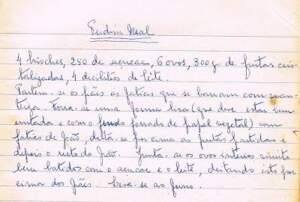 Pudim Real
4 brioches, 250 de açucar, 6 ovos, 300g de frutas cris
talizadas, 4 decilitros de leite.
Partem-se os pães ás fatias que se barram com man-
teiga. Forra-se uma forma lisa (que deve estar bem
untada e com o fundo forrado de papel vegetal) com
fatias de pão, deita-se por cima as frutas partidas e
depois o resto do pão. Junta-se os ovos inteiros
bem batidos com o açucar e o leite, deitando isto por
cima dos pães. Leva-se ao forno.